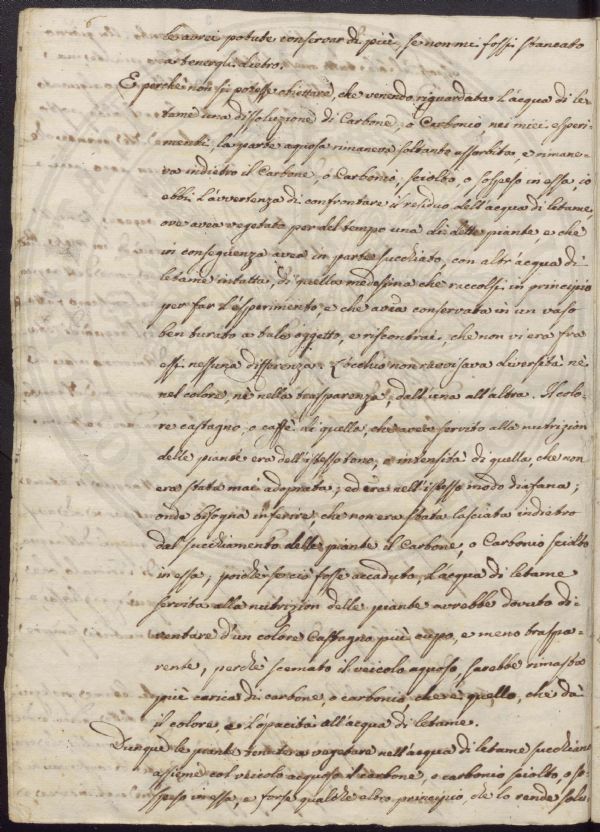 le avrei potute conservar di più, se non mi fossi stancato
a tenergli dietro.
E perchè non si potesse obiettare, che venendo riguardata l'acqua di le-
tame una dissoluzione di Carbone, o Carbonio, nei miei esperi-
menti, la parte aquosa rimaneva soltanto assorbita, e rimane-
va indietro il Carbone, o Carbonio, sciolto, o sospeso in essa, io
ebbi l'avvertenza di confrontare il residuo dell'acqua di letame,
ove avea vegetato per del tempo una di dette piante, e che
in conseguenza avea in parte succhiato, con altr'acqua di
letame intatta, di quella medesima che raccolsi in principio
per far l'esperimento, e che avea conservata in un vaso
ben turato a tale oggetto, e riscontrai, che non vi era fra
essi nessuna differenza. L'occhio non ravvisava diversità nè
nel colore, nè nella trasparenza, dall'una all'altra. Il colo-
re castagno, o caffè di quella, che avea servito alla nutrizion
delle piante era dell'istesso tono, o intensità di quella, che non
era stata mai adoprata; ed era nell'istesso modo diafana;
onde bisogna inferire, che non era stata lasciato indietro
dal succhiamento delle piante il Carbone, o Carbonio sciolto
in essa, poichè se ciò fosse accaduto, l'acqua di letame
servita alla nutrizion delle piante avrebbe dovuto di-
ventare d'un colore Castagno più cupo, e meno traspa-
rente, perchè scemato il veicolo aquoso, sarebbe rimasta
più carica di carbone, o carbonio, che è quello, che dà
il colore, e l'opacità all'acqua di letame.
Dunque le piante tenute a vegetare nell'acqua di letame succhiano
assieme col veicolo acquoso il carbone, o carbonio sciolto, o so-
speso in essa, e forse qualche altro principio, che lo rende solu-